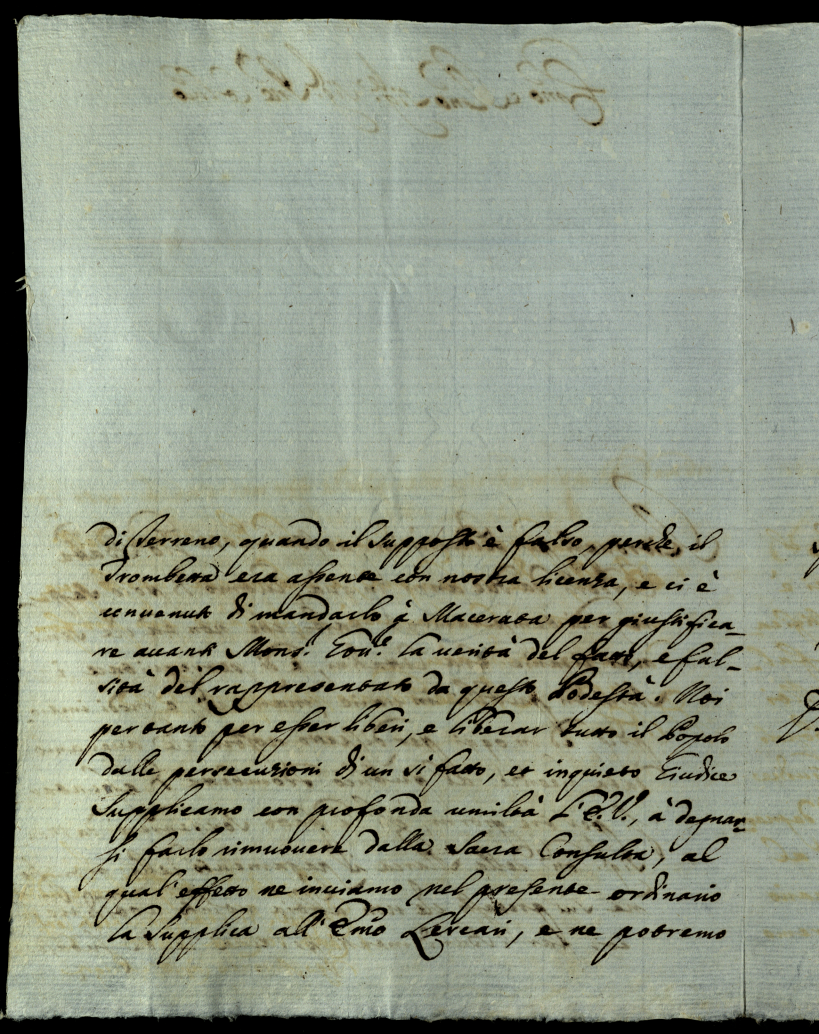 di Terreno, quando il supposto è falso, perche il
Trombetta era assente con nostra licenza, e ci è
convenuto di mandarlo à Macerata per giustifica=
re avanti Mons.r Gov.re la verità del fatto, e fal=
sità del rappresentato da questo Podestà. Noi
pertanto per esser liberi, e liberar tutto il Popolo
dalle persecuzioni di un si fatto, et inquieto Giudice
supplicamo con profonda umiltà l'E.V., à degnar=
si farlo rimuovere dalla Sacra Consulta, al
qual'effetto ne inviamo nel presente ordinario
la supplica all'Emo Lercari, e ne potremo